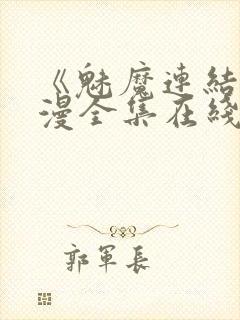 《魅魔連結
漫全集在綫
郭軍長